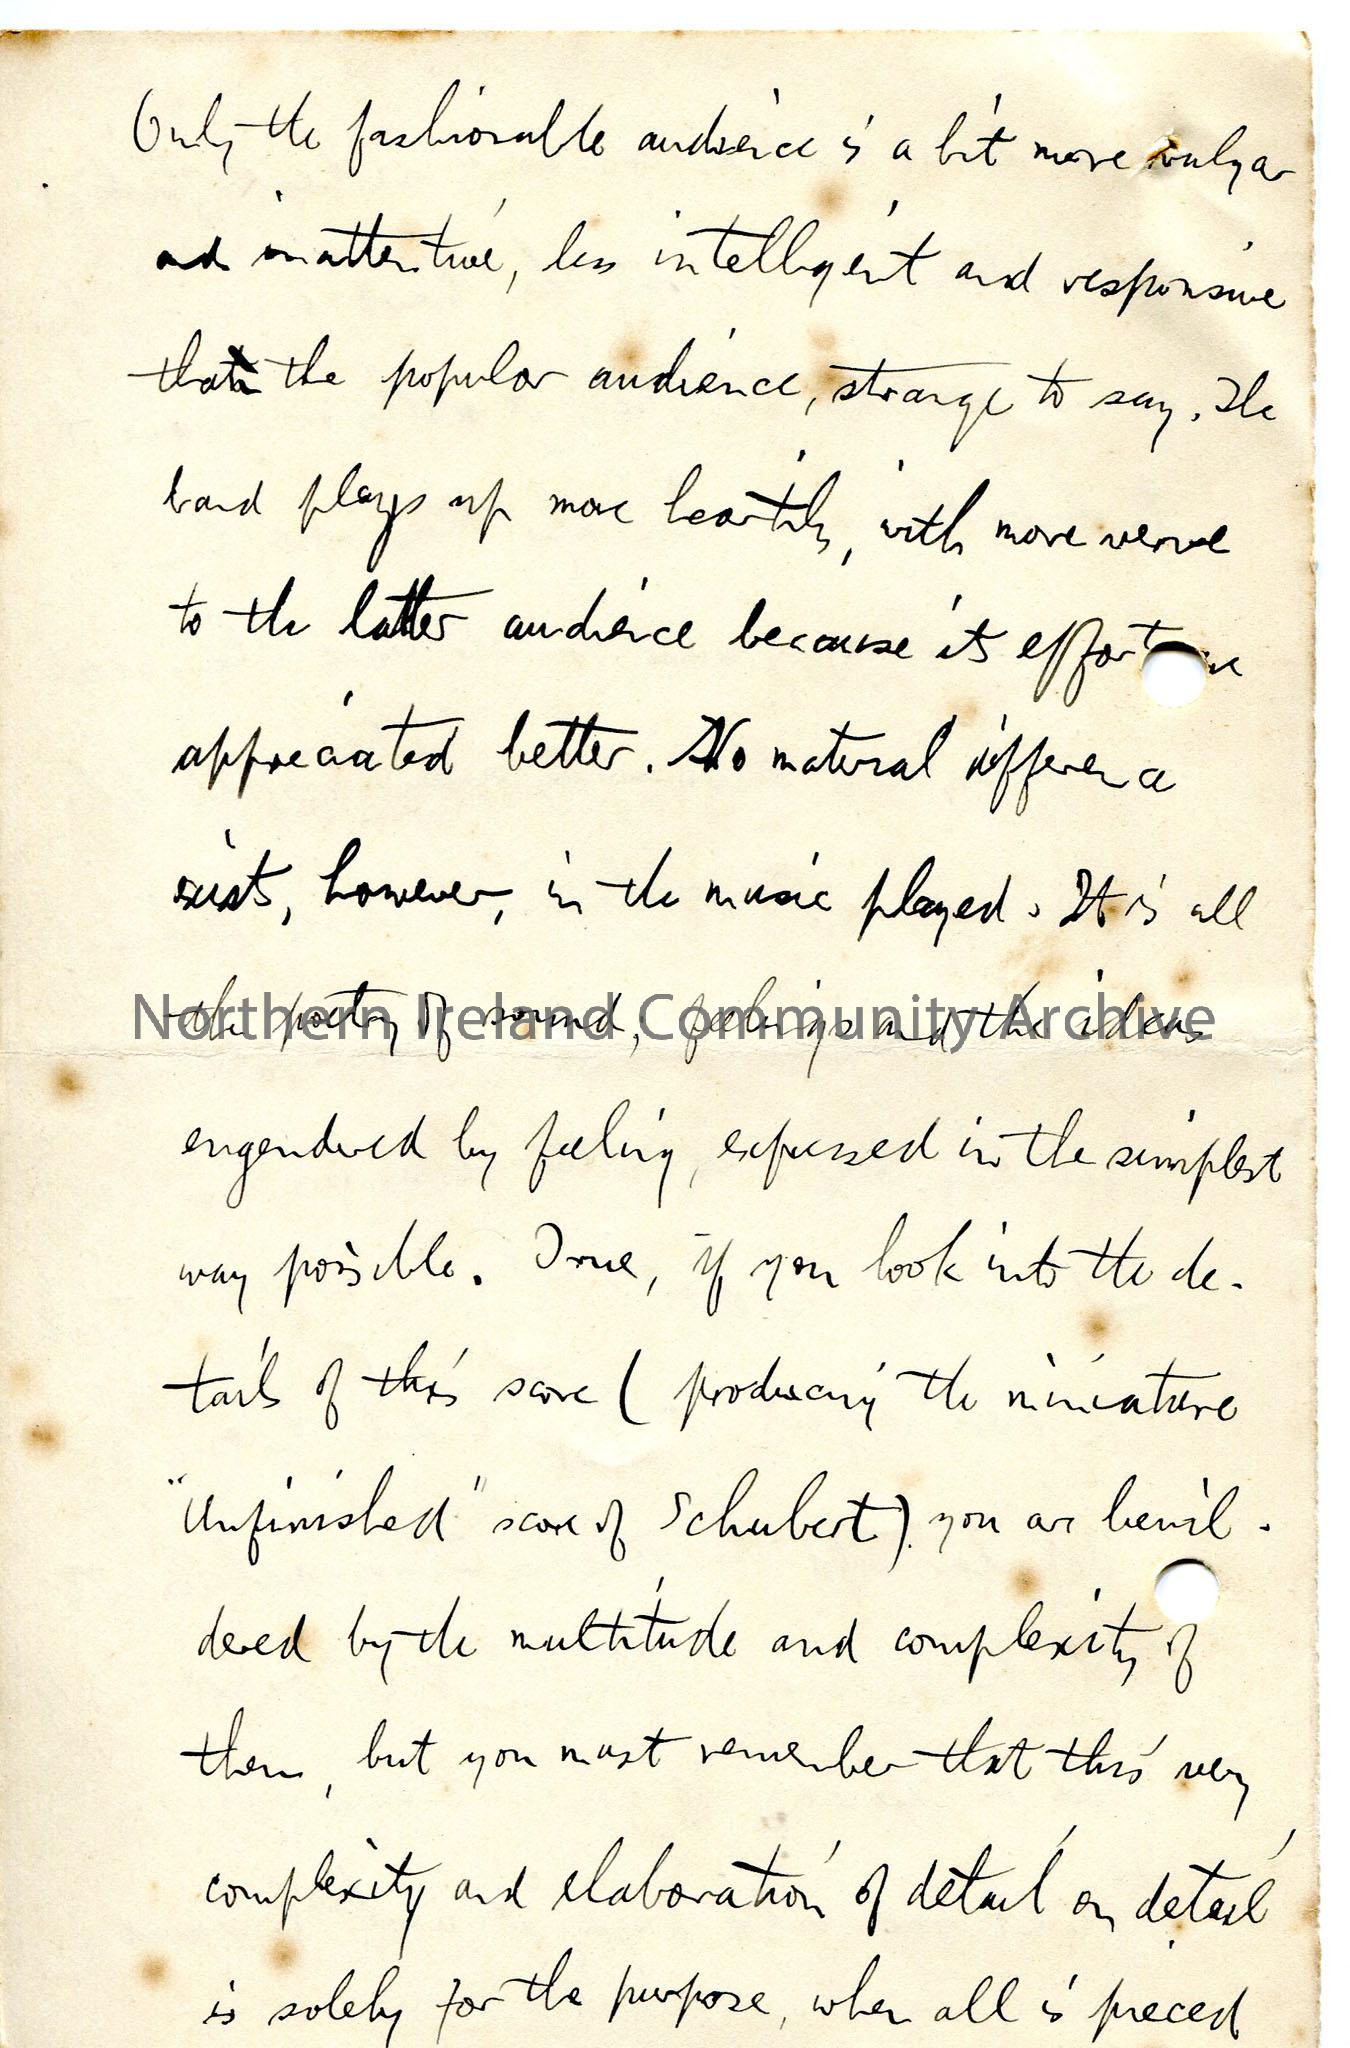 Only the fashionable audience is a bit more vulgar
and inattentive, less intelligent and responsive
than the popular audience, strange to say. The
band plays up more heartily, with more verve
to the latter audience because its effort are
appreciated better. No material difference
exists, however, in the music played. It is all
the poetry of sound, feelings and the ideas
Northern Ireland Community Archive
engendered by feeling, expressed in the simplest
way possible. True, if you look into the de-
tails of this score (producing the miniature
"Unfinished" score of Schubert) you are bewil-
dered by the multitude and complexity of
them, but you must remember that this very
complexity and elaboration of detail on detail
is solely for the purpose, when all is pieced